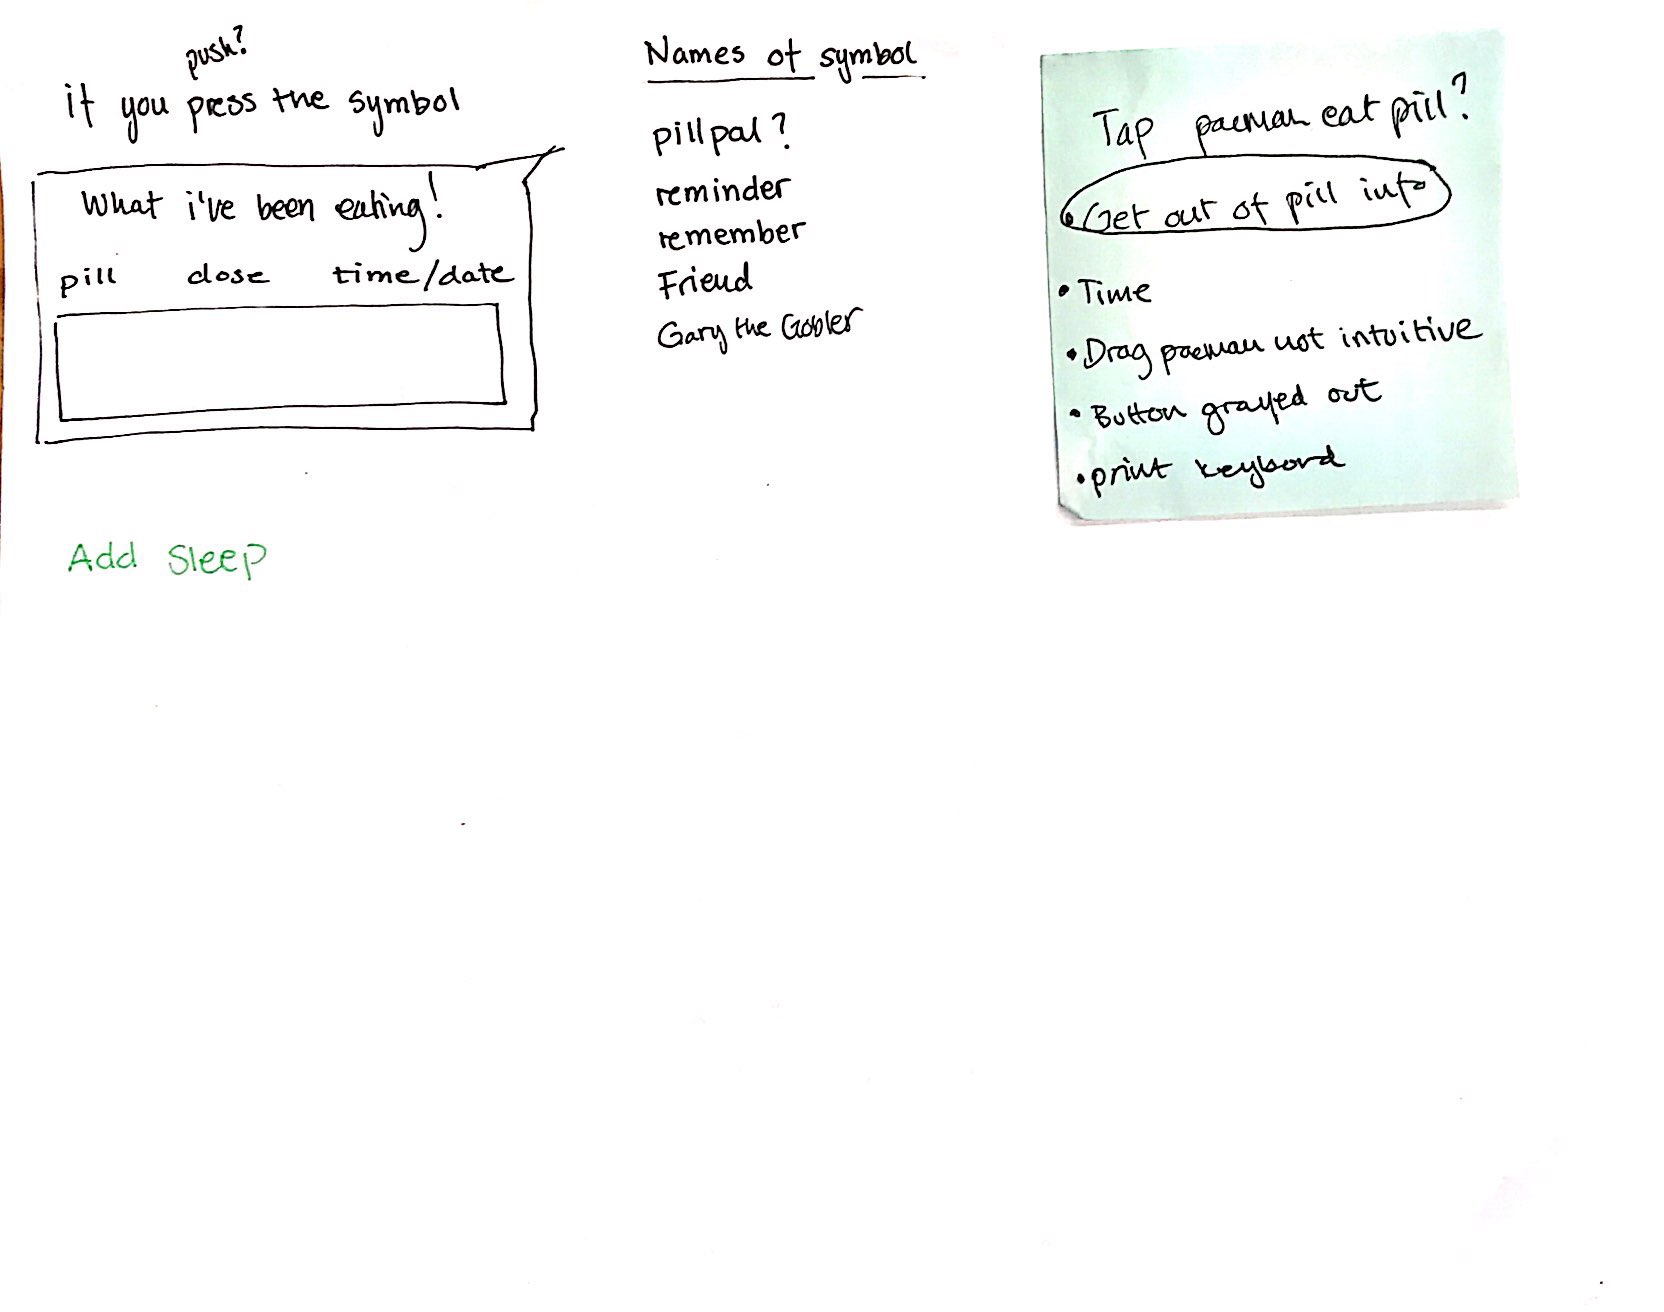 push?
if you press the symbol
What i've been eating!
pill dose time/date
Add Sleep
Names of symbol
pillpal?
reminder
remember
Friend
Gary the Gobler
Tap pacman eat pill?
• Get out of pill info
• Time
• Drag pacman not intuitive
• Button grayed out
• print keybord